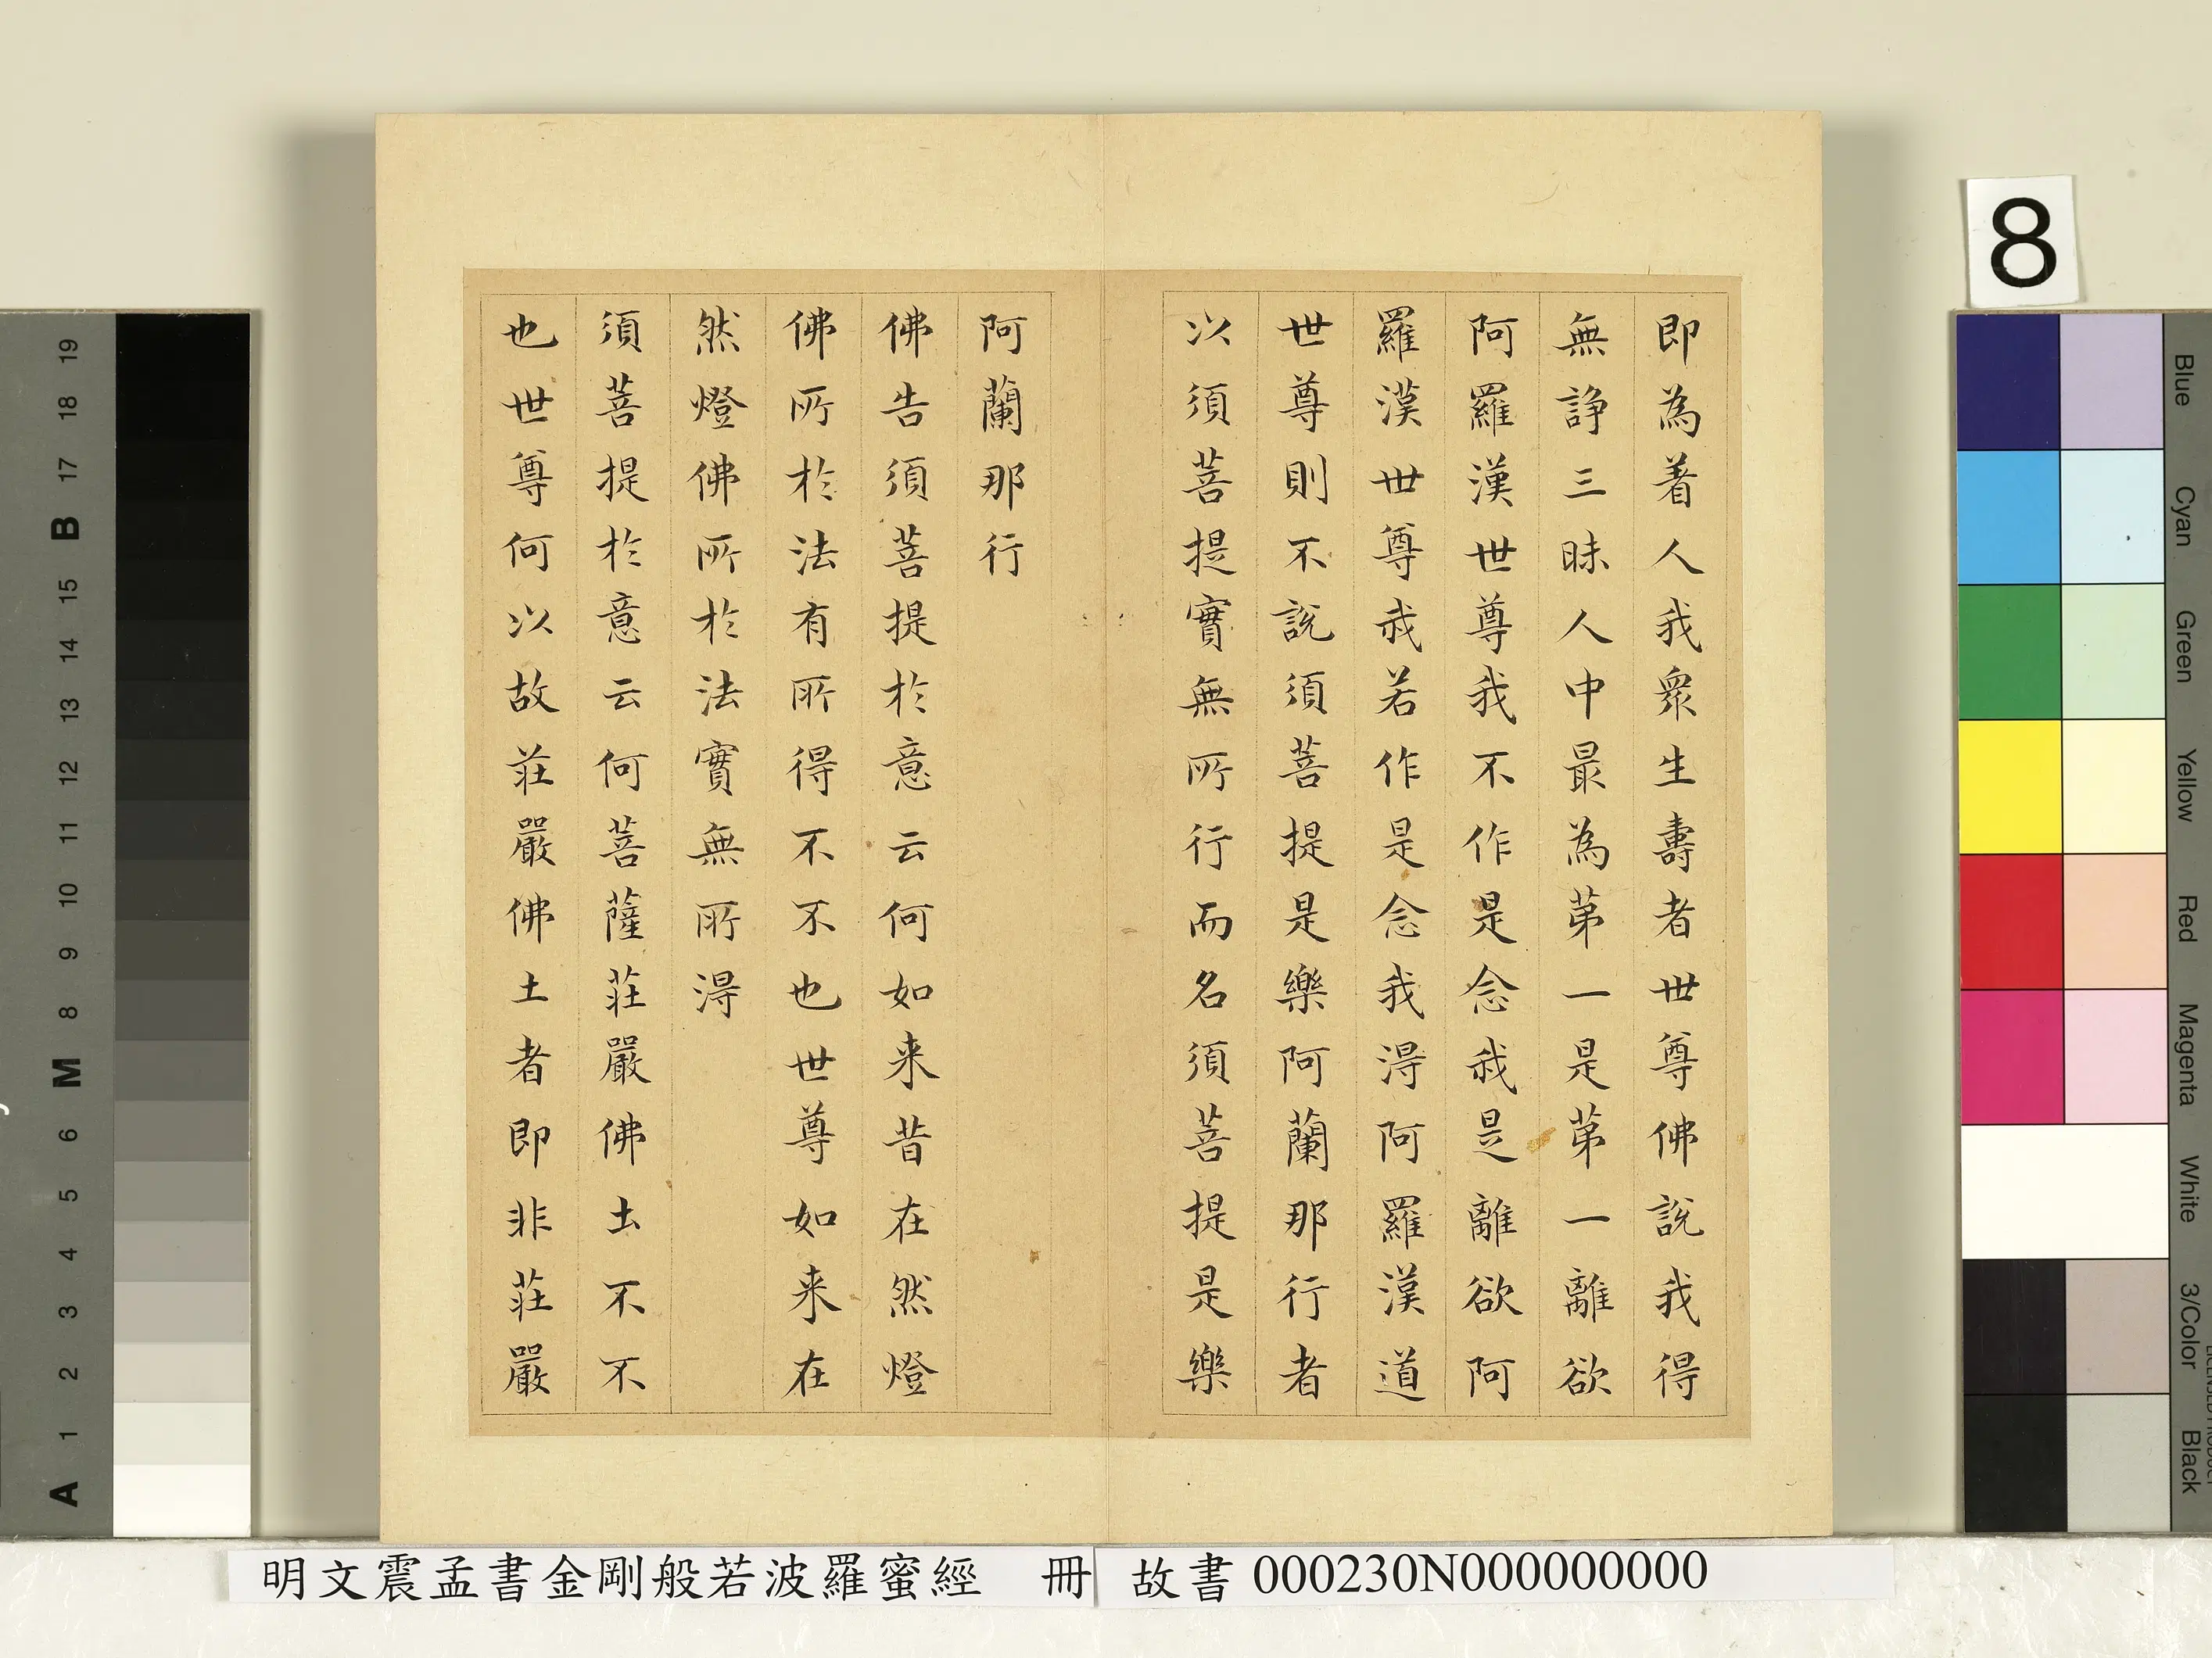 即為着人我衆生壽者世尊佛說我得
無諍三昧人中最為第一是第一離欲
阿羅漢世尊我不作是念我是離欲阿
羅漢世尊我若作是念我淂阿羅漢道
世尊則不說須菩提是樂阿蘭那行者
以須菩提實無所行而名須菩提是樂
阿蘭那行
佛告須菩提於意云何如来昔在然燈
佛所於法有所得不不也世尊如来在
然燈佛所於法實無所淂
須菩提於意云何菩薩莊嚴佛土不不
也世尊何以故莊嚴佛土者即非莊嚴
8
明文震孟書金剛般若波羅蜜經 冊 故書 000230N000000000
19
18
17
B
16
15
14
13
12
11
10
9
8
M
6
5
4
3
2
1
A
Blue
Cyan
Green
Yellow
Red
Magenta
White
3/Color
Black